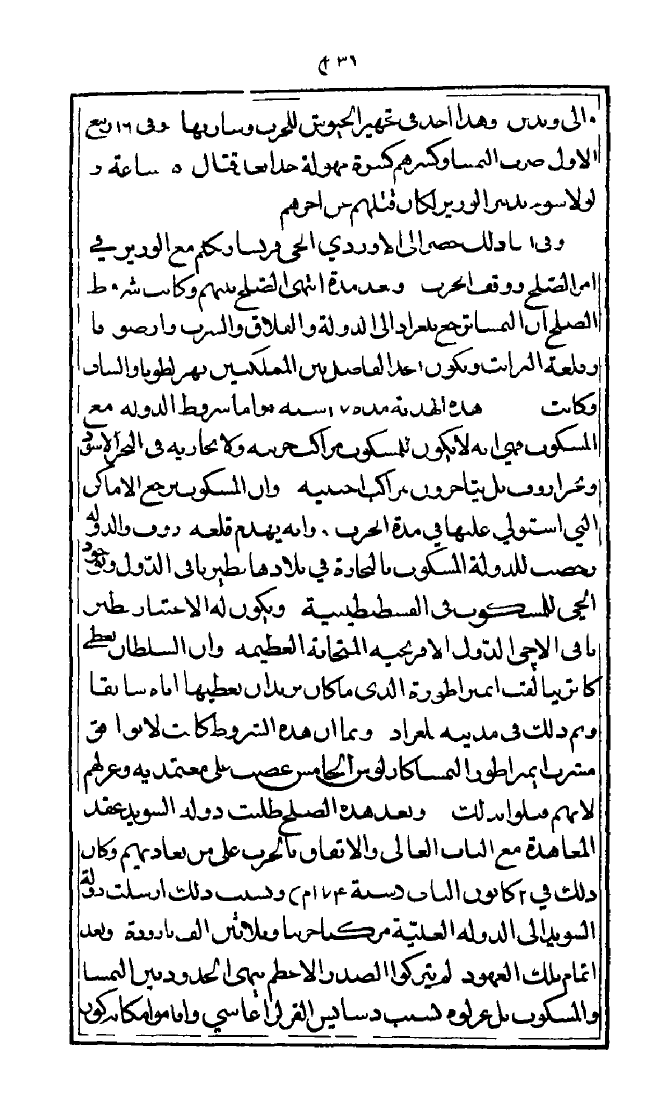 ٣٦
الى ويدين وهذا اخذ في تجهيز الجيوش للحرب وسار بها وفي ١٦ ربيع
الاول ضرب النمسا وكسرهم كسرة مهولة جدا بعد قتال ٥ ساعة و
لولا سوء تدبير الوزير لكان قتلهم عن اخرهم
وفي اثنا ذلك حضر الى الاوردي الجي فرنسا وتكلم مع الوزير في
امر الصلح ووقف الحرب وبعد مدة انتهى الصلح بينهم وكانت شروط
الصلح ان النمسا ترجع بلغراد الى الدولة والفلاق والسرب وارصوفا
وقلعة البرات ويكون الحد الفاصل بين المملكتين نهر لطونا والساف
وكانت هذه الهدنة مدة ٢٧ سنه واما شروط الدوله مع
المسكوب فهي انه لا يكون للمسكوب مراكب حربيه ولا تجاريه في البحر الاسود
وبحر ازوف بل يتاجرون بمراكب اجنبيه وان المسكوب ترجع الاماكن
التي استولي عليها في مدة الحرب . وانه يهدم قلعه ازوف والدوله
رخصت للدولة المسكوب بالتجارة في بلادها نظير باقي الدول ووجود
الجي للمسكوب في القسطنطينية ويكون له الاعتبار نظير
باقي الاجي الدول الافرنجيه المتحابة العظيمه وان السلطان يعطي
كاترينا لقب امبراطورة الذي ما كان يريد ان يعطيها اياه سابقا
وتم ذلك في مدينه بلغراد وبما ان هذه الشروط كانت لا توافق
مشرب امبراطور النمسا كارلوس الخامس غضب على معتمديه وعزلهم
لانهم قبلوا بذلك وبعد هذه الصلح طلبت دولة السويد عقد
المعاهدة مع الباب العالي والاتفاق بالحرب على من يعاديهم وكان
ذلك في ٢ كانون الثاني (سنة ١٧٤٠م) وبسبب ذلك ارسلت دولة
السويد الى الدوله العليّة مركبا حربيا وثلاثين الف بارودة وبعد
اتمام تلك العهود لم يتركوا الصدر الاعظم ينهي الحدود بين النمسا
والمسكوب بل عزلوه بسبب دسايس القزلر اغاسي واقاموا مكانه كون